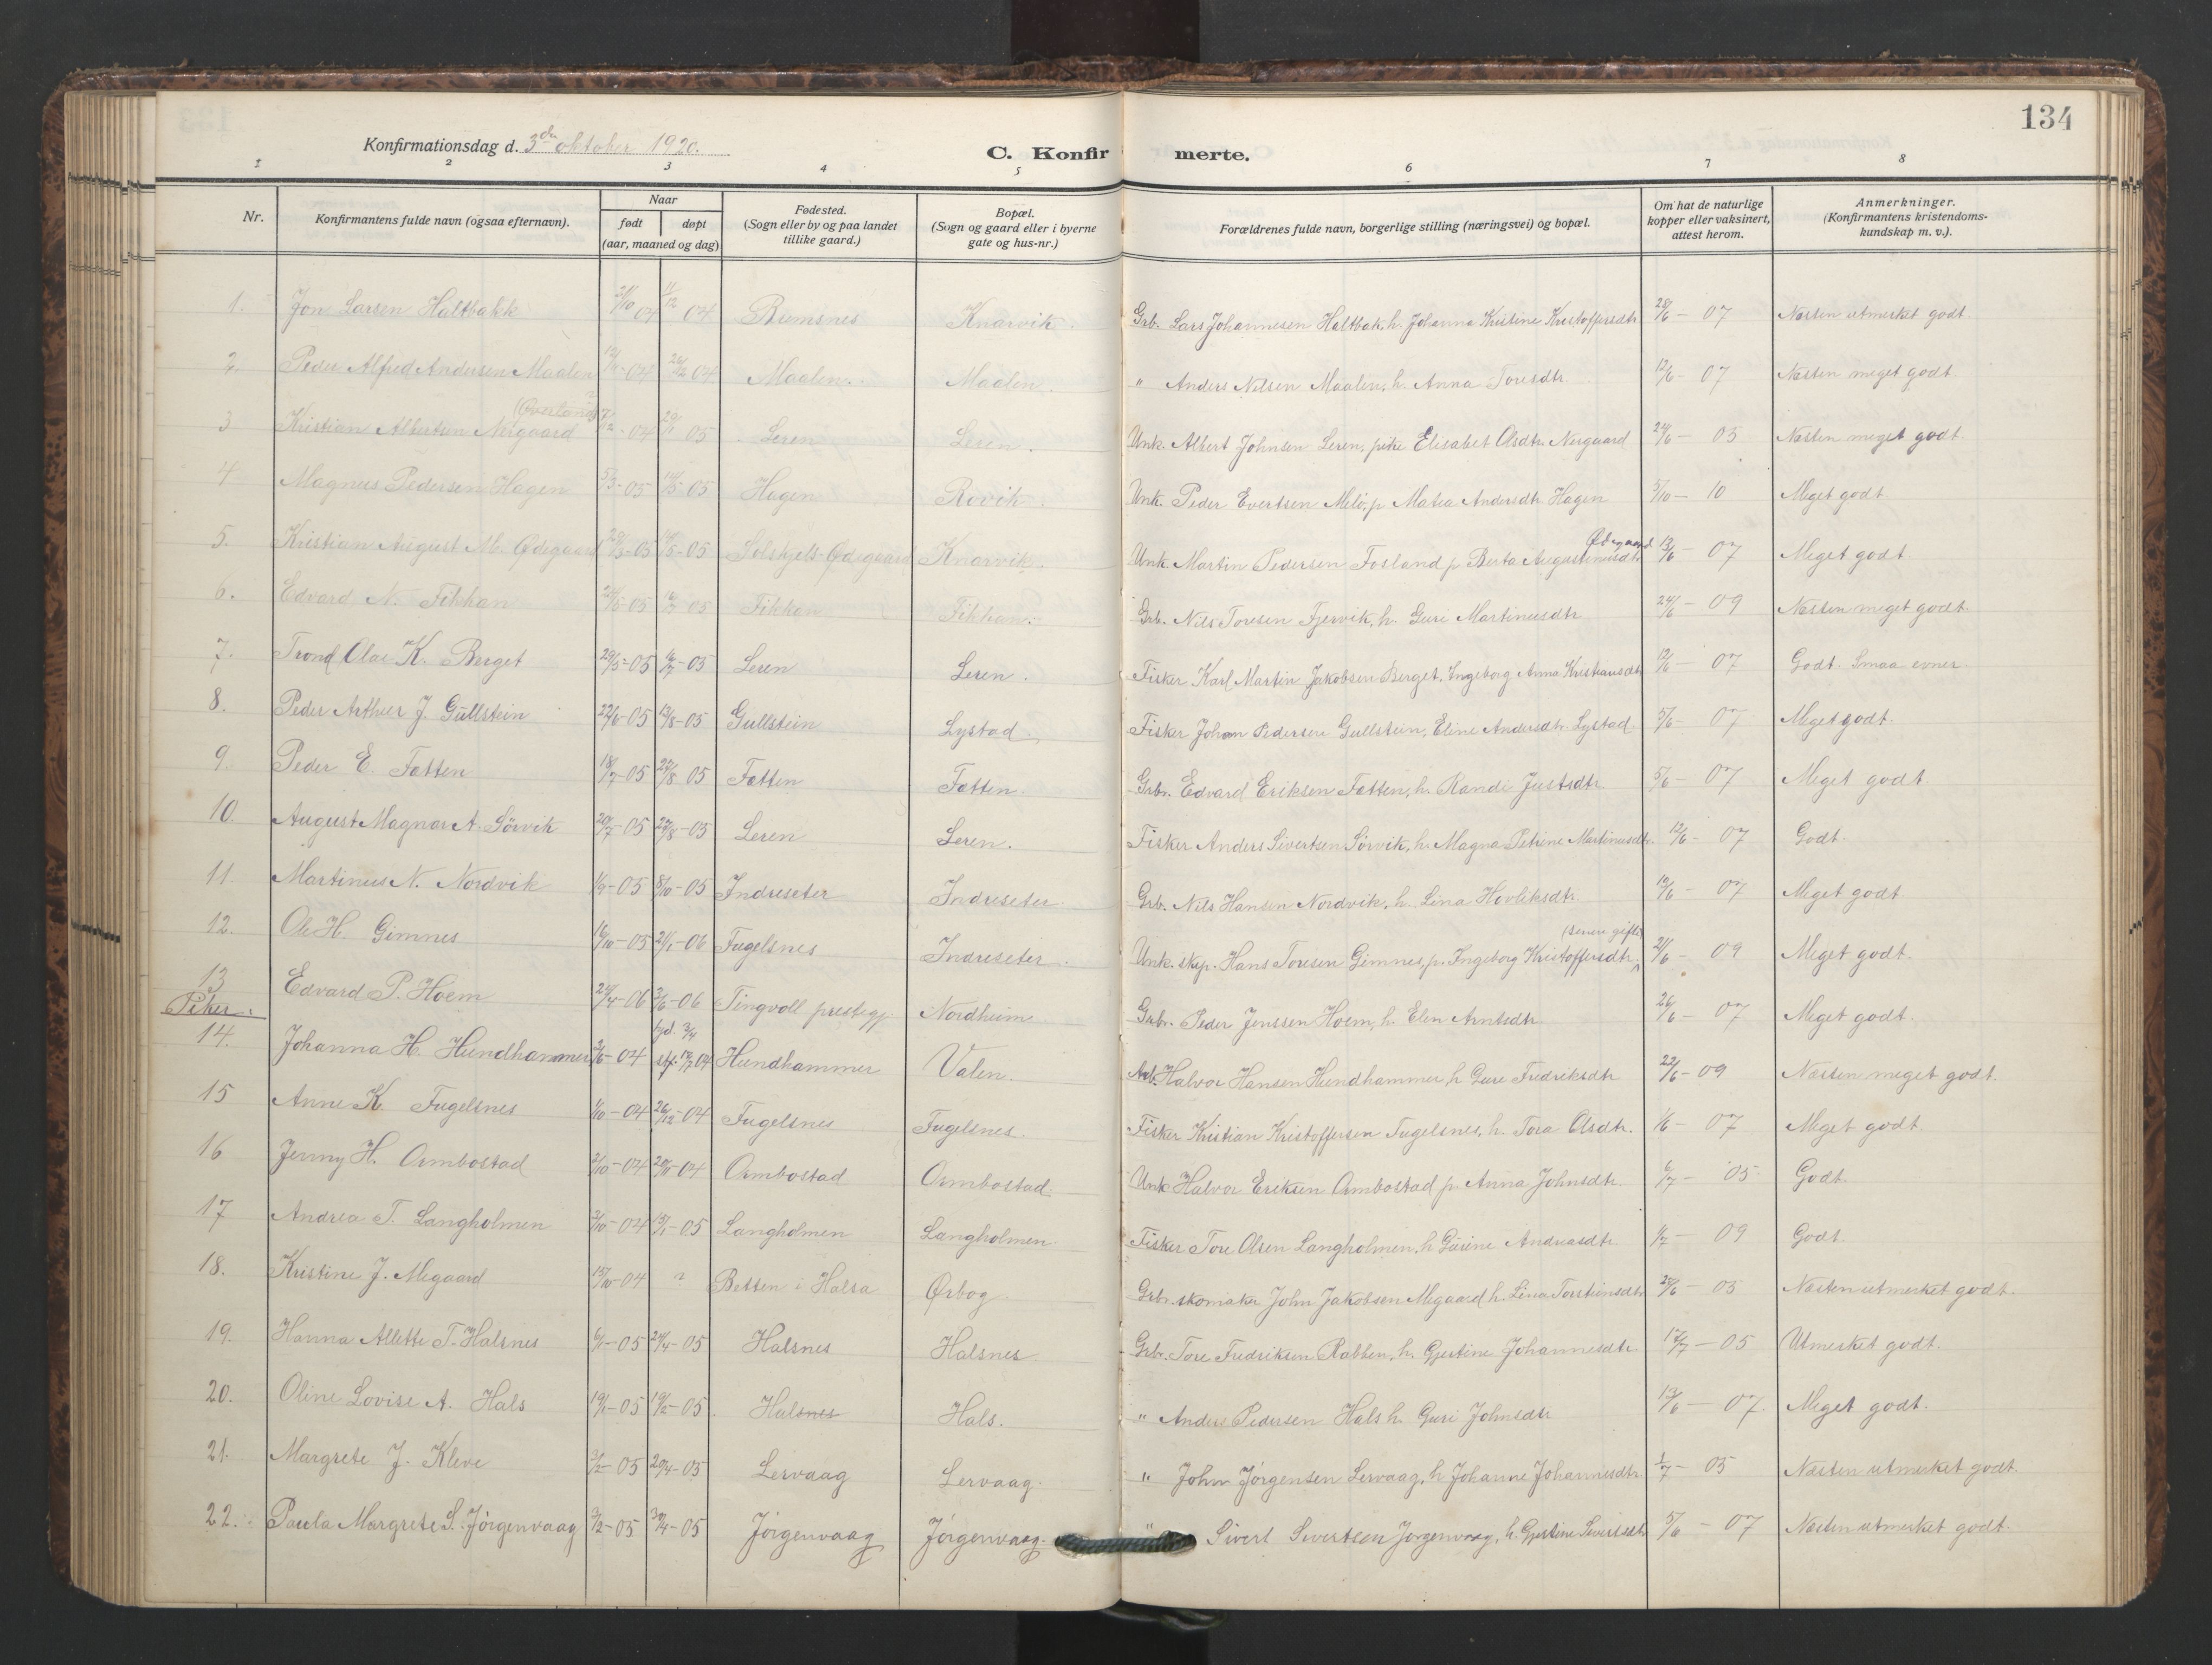 134
Konfirmationsdag d. 3die oktober 1920.
C. Konfirmerte.
1 2 3 4 5 6 7 8
Nr. Konfirmantens fulde navn (ogsaa efternavn). Naar født døpt (aar, maaned og dag) Fødested. (Sogn eller by og paa landet tillike gaard.) Bopæl. (Sogn og gaard eller i byerne gate og hus-nr.) Forældrenes fulde navn, borgerlige stilling (næringsvei) og bopæl. Om hat de naturlige kopper eller vaksinert, attest herom. Anmerkninger. (Konfirmantens kristendoms-kundskap m. v.).
1. Jon Larsen Haltbakk 04 11/12 04 Bremsnes Knarvik. Grb. Lars Johannesen Haltbak, h. Johanna Kristine Kristoffersdtr 28/6 - 07 Næsten utmerket godt
2. Peder Alfred Andersen Maalen 04 26/12 04 Maalen. Maalen. " Anders Nilsen Maalen, h. Anna Toresdtr. 12/6 - 07 Næsten meget godt
(Overland)
3 Kristiane Albertsen Nergaard 7/12 - 04 29/1 05 Leren Leren. Unk. Albert Johnsen Leren, pike Elisabet Olsdtr. Nergaard 24/6 - 05 Næsten meget godt.
4 Magnus Pedersen Hagen 5/3 - 05 14/5 - 05 Hagen Rovik. Unk. Peder Evertsen Melö, p. Matea Andersdtr Hagen 5/10 - 10 Meget godt
Ødegaard
5. Kristian August M. Ødegaard 29/3 - 05 14/5 - 05 Solskjels-Ødegaard Knarvik. Unk. Martin Pedersen Fosland p. Berta Augustinusdtr. 13/6 - 07 Meget godt.
6. Edvard N. Fikkan 24/5 - 05 16/7 05 Fikkan Fikkan. Grb. Nils Toresen Fjervik, h. Guri Martinusdtr 24/6 - 09 Næsten meget godt.
7. Trond Olai K. Berget 29/5 - 05 16/7 - 05 Leren Leren. Fisker Karl Martin Jakobsen Berget, Ingeborg Anna Kristiansdtr 12/6 - 07 Godt. Smaa evner.
8. Peder Arthur J. Gullstein 22/6 - 05 13/8 - 05 Gullstein Lystad. Fisker Johan Pedersen Gullstein, Eline Andersdtr. Lystad. 5/6 - 07 Meget godt.
9. Peder E. Fætten 18/7 - 05 27/8 05 Fætten Fætten. Grbr. Edvard Eriksen Fætten, h. Randi Justsdtr. 5/6 - 07 Meget godt.
10. August Magnar A. Sörvik 20/7 - 05 27/8 - 05 Leren Leren. Fisker Anders Sivertsen Sörvik, h. Magna Petrine Martinusdtr. 12/6 - 07 Godt.
11 Martinus N. Nordvik 1/9 - 05 8/10 - 05 Indreseter Indreseter. Grb. Nils Hansen Nordvik, h. Lina Hovliksdtr. 12/6 - 07 Meget godt
(senere gifte)
12. Ole H. Gimnes 16/10 - 05 21/1 - 06 Fugelsnes Indreseter. Unk. skp. Hans Toresen Gimnes, p. Ingeborg Kristoffersdtr. 21/6 - 09 Meget godt.
13 Edvard P. Hoem 24/4 - 06 3/6 - 06 Tingvoll prestegj. Nordheim Grbr. Peder Jenssen Hoem, h. Elen Arntsdtr. 26/6 - 07 Meget godt.
Piker.
14. Johanna H. Hundhammer 2/6 - 04 hjd. 3/4 stf. 17/7 04 Hundhammer Valen. Arb. Halvor Hansen Hundhammer h. Guri Fredriksdtr 22/6 - 09 Næsten meget godt.
15 Anne K. Fugelsnes 1/10 - 04 26/12 - 04 Fugelsnes Fugelsnes. Fisker Kristian Kristoffersen Fugelsnes, h. Tora Olsdtr. 1/6 - 07 Meget godt.
16 Jenny H. Ormbostad 2/10 - 04 20/11 - 04 Ormbostad Ormbostad. Unk Halvor Eriksen Ormbostad p. Anna Johnsdtr. 6/7 - 05 Godt.
17 Andrea T. Langholmen 3/10 - 04 15/1 - 05 Langholmen Langholmen. Fisker Tore Olsen Langholmen, h Gurine Andreasdtr. 1/7 - 09 Godt.
18. Kristine J. Megaard 15/10 - 04 ? Betten i Halsa Ørbog. Grbr. skomaker John Jakobsen Megaard h. Lina Torstensdtr 28/6 - 05 Næsten utmerket godt.
19. Hanna Allette T. Halsnes 6/1 - 05 24/4 - 05 Halsnes Halsnes. Grbr. Tore Fredriksen Rabben, h. Gjertine Johannesdtr. 17/7 - 05 Utmerket godt.
20. Oline Lovise A. Hals 19/1 - 05 19/2 - 05. Halsnes Hals. " Anders Pedersen Hals h. Guri Johnsdtr 12/6 - 07. Meget godt.
21. Margrete J. Kleve 3/2 - 05 20/4 - 05 Lervaag Lervaag. " John Jørgensen Lervaag, h. Johanne Johannesdtr. 1/7 - 05 Næsten utmerket godt.
22. Paula Margrete S. Jörgenvaag 3/2 - 05 30/4 - 05 Jörgenvaag Jörgenvaag. " Sivert Sivertsen Jörgenvaag, h. Gjertine Sivertsdtr 5/6 - 07 Næsten utmerket godt.